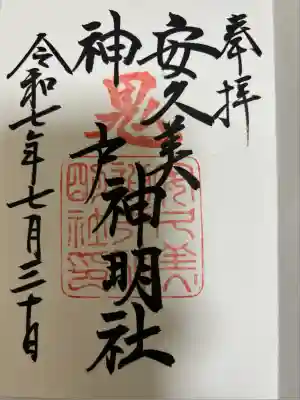 奉拝
安久美
神戸神明社
鬼
令和七年七月三十日